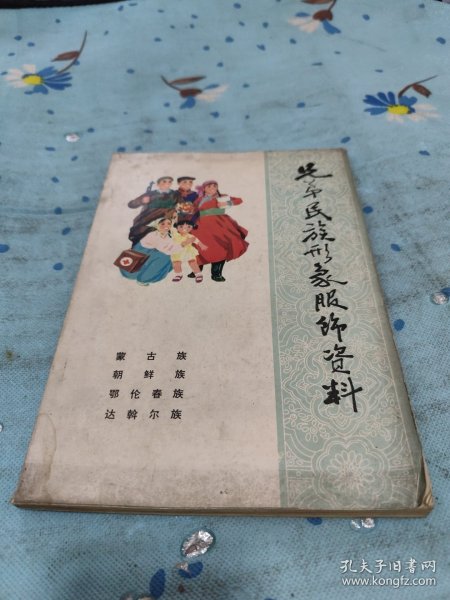 兄弟民族形象服饰资料
蒙古族
朝鲜族
鄂伦春族
达斡尔族
孔夫子旧书网
www.kongfz.com